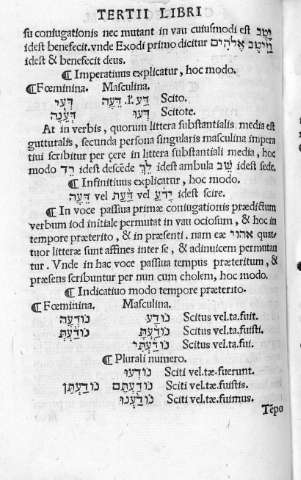 TERTII LIBRI
su coniugationis nec mutant in vau cuiusmodi est יָטַב
idest benefecit. vnde Exodi primo dicitur וַיֵּיטֶב אֱלֹהִים
idest & benefecit deus.
¶ Imperatiuus explicatur, hoc modo.
¶ Fœminina. Masculina.
דְּעִי דַּע .ľ. דֵּעָה Scito.
דַּעְנָה דְּעוּ Scitote.
At in verbis, quorum littera substantialis media est
gutturalis, secunda persona singularis masculina impera
tiui scribitur per çere in littera substantiali media, hoc
modo רֵד idest descēde לֵךְ idest ambula שֵׁב idest sede.
¶ Infinitiuus explicatur, hoc modo.
דֵּעָה vel דַּעַת vel יָדוֹעַ idest scire.
¶ In voce passiua primæ coniugationis prædictum
verbum iod initiale permutat in vau ociosum, & hoc in
tempore præterito, & in præsenti. nam eæ אהוי quatu
tuor litteræ sunt affines inter se, & adinuicem permutan
tur. Vnde in hac voce passiua tempus præteritum, &
præsens scribuntur per nun cum cholem, hoc modo.
¶ Indicatiuo modo tempore præterito.
¶ Fœminina. Masculina.
נוֹדְעָה נוֹדַע Scitus vel.ta.fuit.
נוֹדַעְתְּ נוֹדַעְתָּ Scitus vel.ta.fuisti.
נוֹדַעְתִּי Scitus vel.ta.fui.
¶ Plurali numero.
נוֹדְעוּ Sciti vel.tæ.fuerunt.
נוֹדַעְתֶּן נוֹדַעְתֶּם Sciti vel.tæ.fuistis.
נוֹדַעְנוּ Sciti vel.tæ.fuimus.
Tēpo